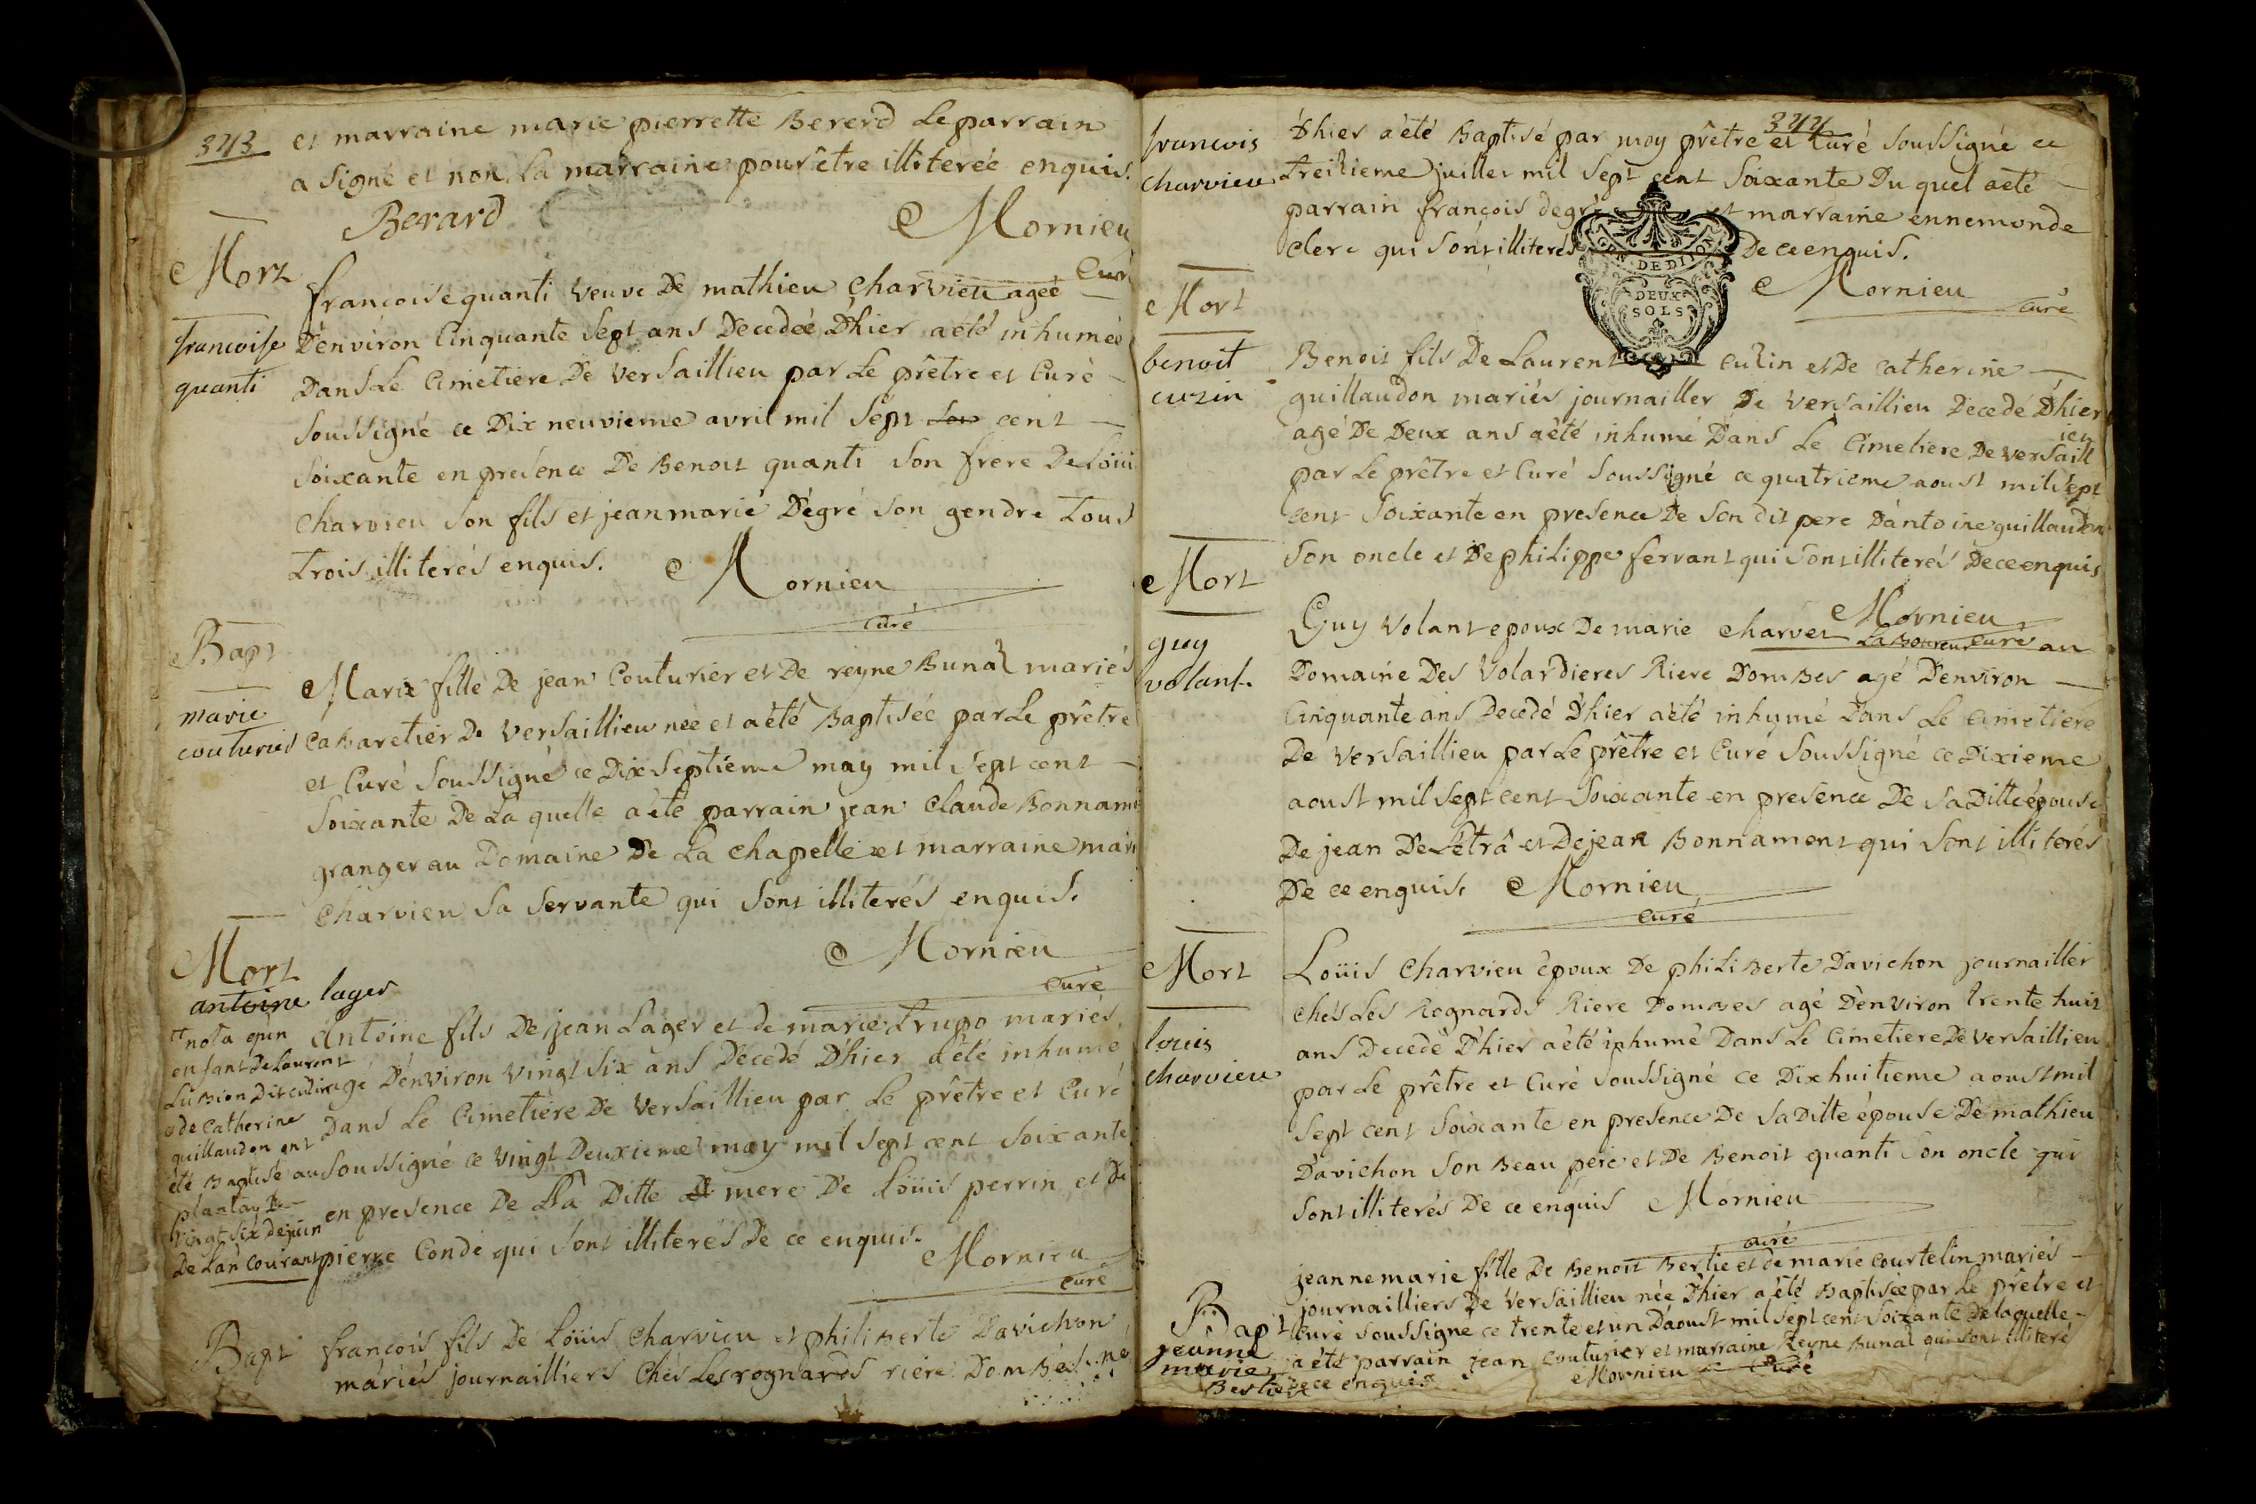 343
et marraine marie pierrette Bererd Le parrain
a Signé et non La marraine pour être illiterée enquis.
Berard Mornieu
Curé
Mort
francoise
quanti
francoise quanti veuve De mathieu Charvieu ageé
D'environ Cinquante Sept ans Decedeé D'hier a été inhumeé
Dans Le Cimetiere De Versaillieu par Le prêtre et Curé
Soussigné ce Dix neuvieme avril mil Sept cent
Soixante en presence De Benoit quanti Son frere De Loüi
Charvieu Son fils et jean marie Dégré Son gendre Tous
Trois illiterés enquis. Mornieu
Curé
Bapt
marie
couturier
Marie fille De jean Couturier et De reyne Bunaz mariés
Cabaretier De Versaillieu neé et a été Baptiséé par Le prêtre
et Curé Soussigné ce Dix Septieme may mil Sept cent
Soixante De La quelle a été parrain jean Claude Bonnam
granger au Domaine De La Chapelle et marraine mari
Charvieu Sa Servante qui Sont illiterés enquis.
Mornieu
Curé
Mort
antoine lager
nota qun
enfant De Laurent
Lubion Dit cuzin
et de Catherine
guillaudon ont
été Baptisé au
plantay Le
Vingt Six de juin
De L'an Courant
Antoine fils De jean Lager et de marie Trupo mariés
agé D'environ Vingt Six ans Décedé D'hier a été inhumé
Dans Le Cimetiere De Versaillieu par Le prêtre et Curé
Soussigné ce Vingt Deuxieme may mil Sept cent Soixante
en presence De La Ditte mere De Loüis perrin et De
pierre Condé qui Sont illiterés De ce enquis.
Mornieu
Curé
Bapt
francois fils De Loüis Charvieu et philiberte Davichon
mariés journailliers Chés Les rognards riere Dombes né
344
francois
charvieu
D'hier a été Baptisé par moy prêtre et Curé Soussigné ce
treizieme juillet mil Sept cent Soixante Du quel a été
parrain françois degré et marraine ennemonde
Clerc qui Sont illiterés De ce enquis.
Mornieu
Curé
DE DIJON
DEUX
SOLS
Mort
benoit
cuzin
Benoit fils De Laurent cuzin et De Catherine
guillaudon mariés journailler De Versaillieu Decedé D'hier
agé De Deux ans a été inhumé Dans Le Cimetiere De versaill
ieu
par Le prêtre et Curé Soussigné ce quatrieme aoust mil Sept
cent Soixante en presence De Son dit pere D'antoine guillaudon
Son oncle et De philippe fervant qui Sont illiterés De ce enquis
Mornieu
Curé
Mort
guy
volant.
Guy Volant epoux De marie Charvet Laboureur au
Domaine Des Volardieres Riere Dombes agé D'environ
Cinquante ans Decedé D'hier a été inhumé Dans Le Cimetiere
De Versaillieu par Le prêtre et Curé Soussigné ce Dixieme
aoust mil Sept cent Soixante en presence De Sa Ditte épouse
De jean De Letrâ et De jean Bonnamont qui Sont illiterés
De ce enquis. Mornieu
Curé
Mort
louis
charvieu
Loüis Charvieu époux De philiberte Davichon journailler
Chés Les Rognards Riere Dombes agé D'environ trente huit
ans Decedé D'hier a été inhumé Dans Le Cimetiere De Versaillieu
par Le prêtre et Curé Soussigné ce Dix huitieme aoust mil
Sept cent Soixante en presence De Sa Ditte épouse De mathieu
Davichon Son Beau pere et De Benoit quanti Son oncle qui
Sont illiterés De ce enquis Mornieu
Curé
Bapt
jeanne
marie
Bertie
jeanne marie fille De Benoit Bertie et de marie Courtelin mariés
journailliers De Versaillieu née D'hier a été Baptisée par Le prêtre et
Curé Soussigné ce trente et un D'aoust mil Sept cent Soixante De laquelle
a été parrain jean Couturier et marraine Reyne Bunaz qui Sont illiteré
De ce enquis Mornieu Curé